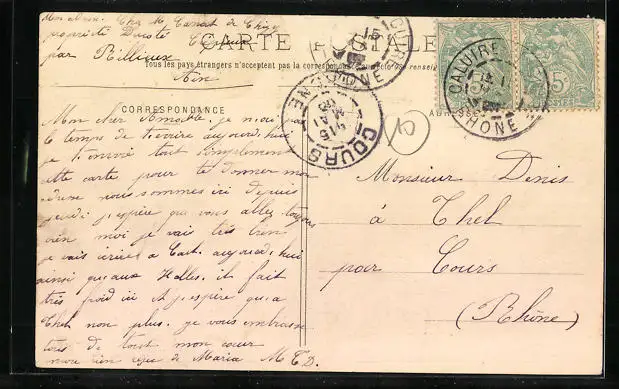 Mon adresse. Chez M.
propriété
par Rillieux
Ain
CARTE POSTALE
Tous les pays étrangers n'acceptent pas la correspondance
CORRESPONDANCE
ADRESSE
CALUIRE
RHONE
COURS
RHONE
Mon cher je n'ai
le temps de t'écrire aujourd'hui
je t'envoie tout simplement
cette carte pour te donner mon
adresse nous sommes ici depuis
jeudi j'espère que vous allez toujours
bien moi je vais très bien
je vais aujourd'hui
ainsi qu'aux Halles. il fait
très froid ici et j'espère qu'à
Thel non plus. je vous embrasse
tous de tout mon cœur
rien de Maria M. T. D.
Monsieur Denis
à Thel
par Cours
(Rhône)